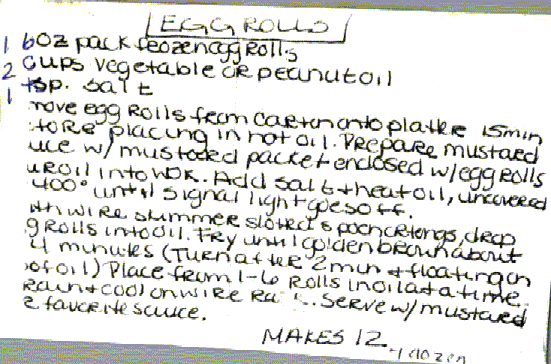 EGG ROLLS
1 6oz pack frozen egg Rolls
2 cups vegetable or peanut oil
1 tsp. salt
move egg Rolls from carton onto platter 15 min
fore placing in hot oil. Prepare mustard
uce w/ mustard packet enclosed w/egg rolls
ur oil into wok. Add salt + heat oil, uncovered
400° until signal light goes off.
ith wire skimmer slotted spoon or tongs, drop
g rolls into oil. Fry until golden brown about
4 minutes (Turn after 2 min + floating on
of oil) Place from 1-6 rolls in oil at a time.
rain + cool on wire Ra Serve w/ mustard
r favorite sauce.
MAKES 12
1 dozen